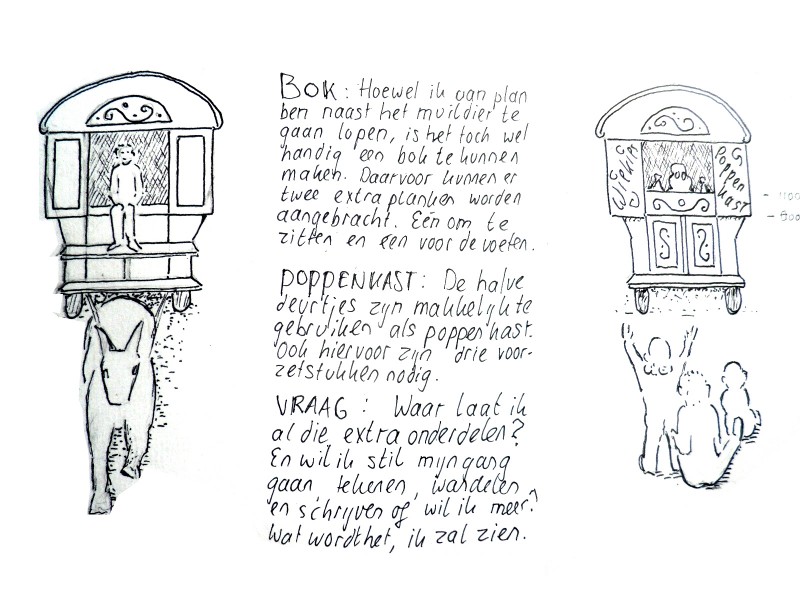 BOK : Hoewel ik van plan
ben naast het muildier te
gaan lopen, is het toch wel
handig een bok te kunnen
maken. Daarvoor kunnen er
twee extra planken worden
aangebracht. Eén om te
zitten en een voor de voeten.
POPPENKAST : De halve
deurtjes zijn makkelijk te
gebruiken als poppenkast.
Ook hiervoor zijn drie voor-
zetstukken nodig.
VRAAG : Waar laat ik
al die extra onderdelen?
En wil ik stil mijn gang
gaan, tekenen, wandelen
en schrijven of wil ik meer?
Wat wordt het, ik zal zien.
Poppen
kast